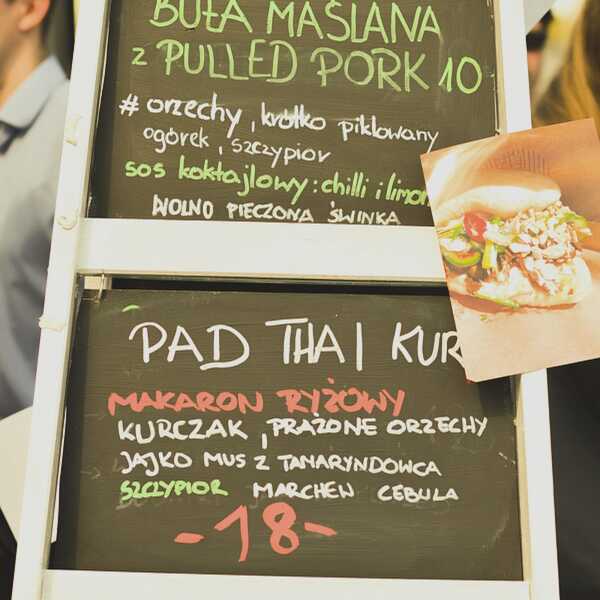 BUŁA MAŚLANA
z PULLED PORK 10
# orzechy, krótko piklowany
ogórek, szczypior
sos koktajlowy: chilli i limon
WOLNO PIECZONA ŚWINKA
PAD THAI KUR
MAKARON RYŻOWY
KURCZAK, PRAŻONE ORZECHY
JAJKO MUS Z TAMARYNDOWCA
SZCZYPIOR MARCHEW CEBULA
-18-